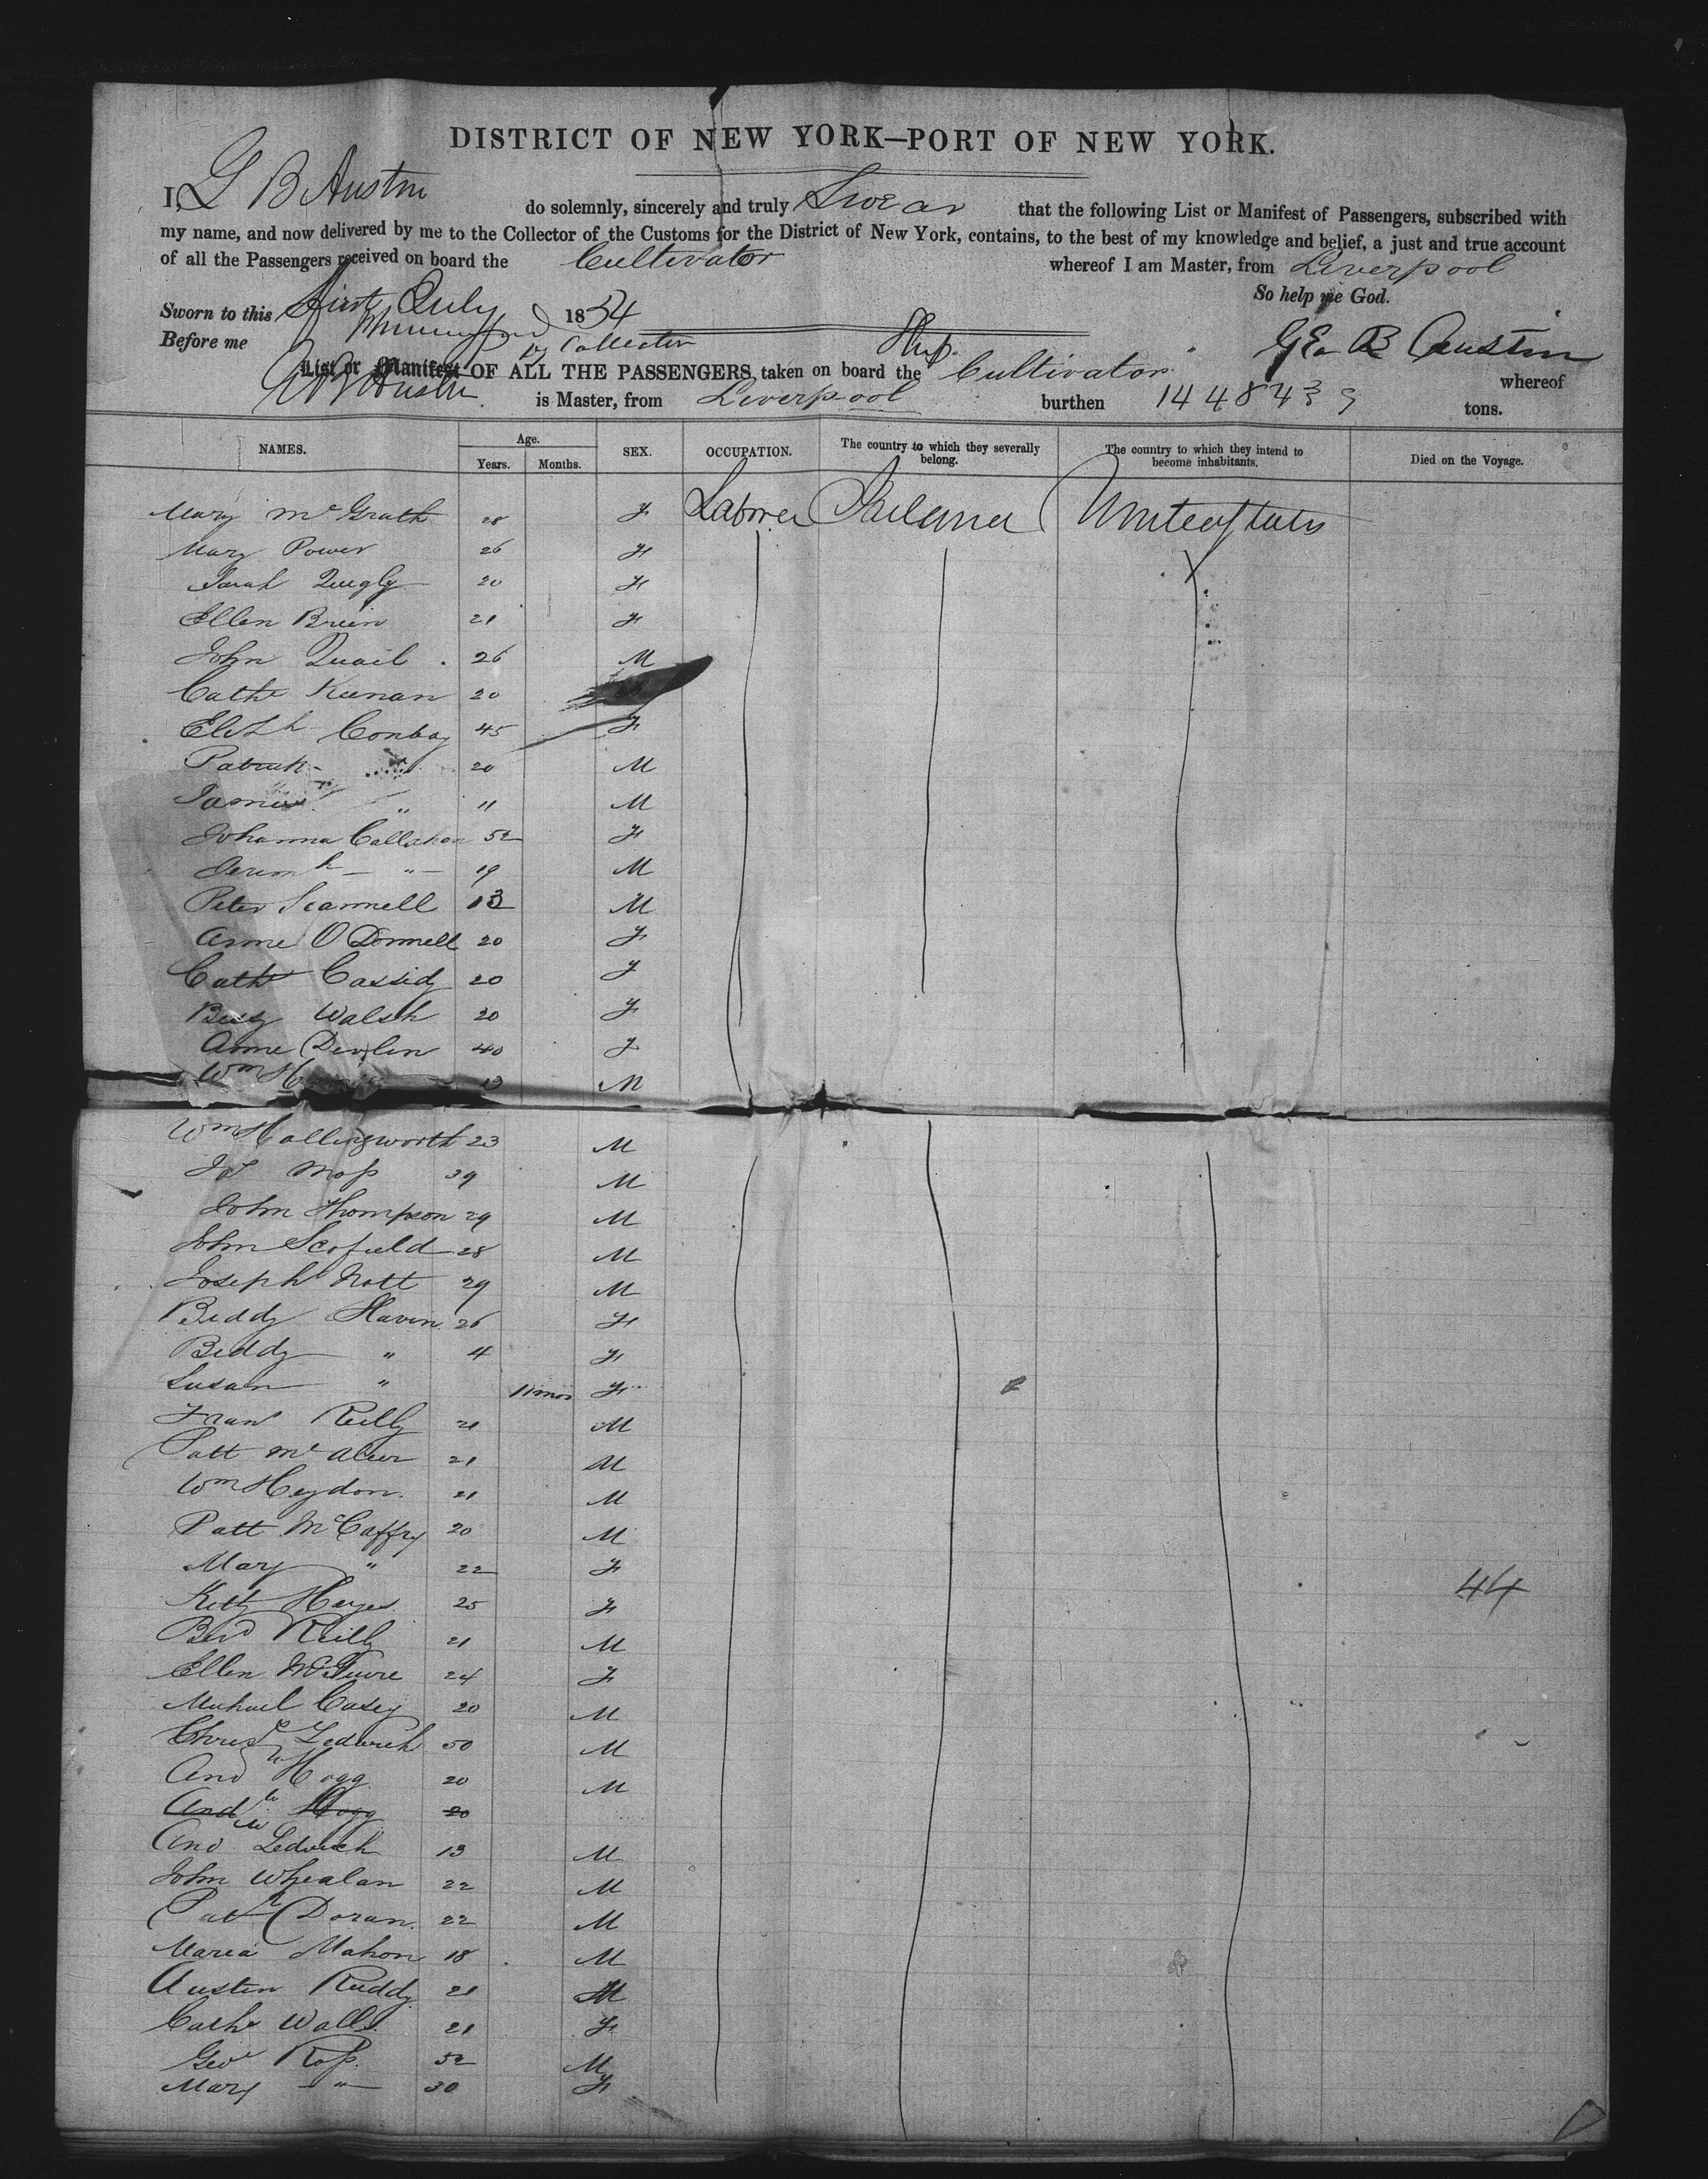 DISTRICT OF NEW YORK—PORT OF NEW YORK.
I, G B Austin do solemnly, sincerely and truly Swear that the following List or Manifest of Passengers, subscribed with
my name, and now delivered by me to the Collector of the Customs for the District of New York, contains, to the best of my knowledge and belief, a just and true account
of all the Passengers received on board the Cultivator whereof I am Master, from Liverpool
So help me God.
Sworn to this First July 1854
Before me Collector Geo B Austin
List or Manifest OF ALL THE PASSENGERS taken on board the Ship Cultivator whereof
G B Austin is Master, from Liverpool burthen 1448 43 tons.
NAMES. Age. Years. Months. SEX. OCCUPATION. The country to which they severally belong. The country to which they intend to become inhabitants. Died on the Voyage.
Mary McGrath 28 F Laborer Ireland United States
Mary Power 26 F
Sarah Quigly 20 F
Ellen Brien 21 F
John Quail 26 M
Cathe Keenan 20
Elizth Conboy 45 F
Patrick 20 M
James " 11 M
Johanna Callahan 52 F
Jeremh " 19 M
Peter Scannell 13 M
Anne O Donnell 20 F
Cathe Cassidy 20 F
Bessy Walsh 20 F
Anne Devlin 40 F
Wm 13 M
Wm Hollingsworth 23 M
Jas Moss 39 M
John Thompson 29 M
John Scofield 28 M
Joseph Nott 29 M
Biddy Slavin 26 F
Biddy " 4 F
Susan " 11 mos F
Frans Reilly 21 M
Patt McAleer 21 M
Wm Heydon 21 M
Patt McCaffry 20 M
Mary " 22 F
44
Kitty Hayes 25 F
Berd Reilly 21 M
Ellen McGuire 24 F
Michael Casey 20 M
Chrisr Ledwich 50 M
Andw Hogg 20 M
Andw Hogg 20
Andw Ledwich 13 M
John Whealan 22 M
Patk Doran 22 M
Maria Mahon 18 M
Austin Ruddy 21 M
Cathe Walls 21 F
Geo Ross 52 M
Mary " 30 F